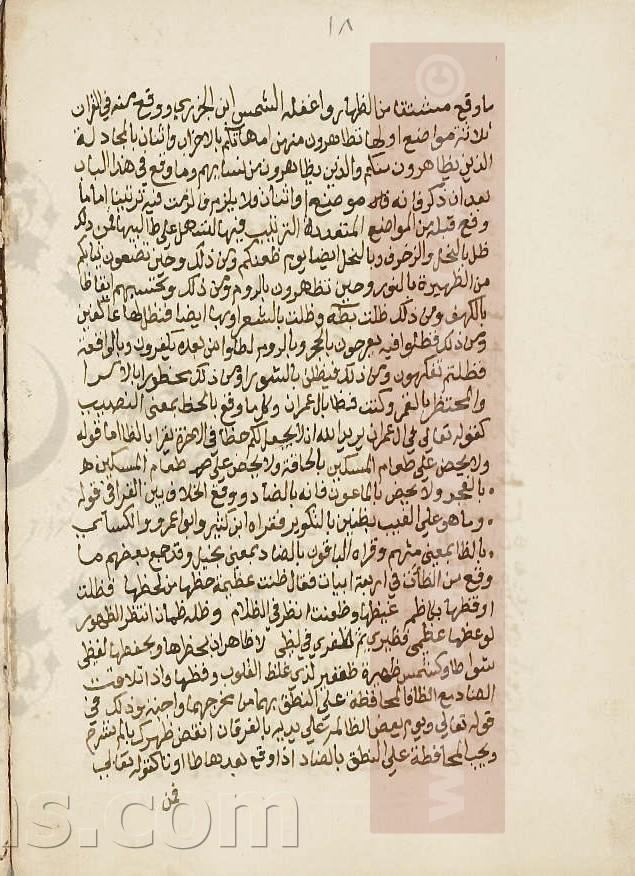 ١٨
ما وقع مشتقا من الظهار واغفله الشمس ابن الجزري ووقع منه في القران
ثلاثة مواضع اولها تظاهرون منهن امهاتكم بالاحزاب واثنان بالمجادلة
الذين يظاهرون منكم والذين يظاهرون من نسائهم وما وقع في هذا الباب
بعد ان ذكر فانه موضع او اثنان فلا يلزم فيه ترتيبا اما ما
وقع قبله من المواضع المتعددة الترتيب فيها لتسهل على طالبيها فمن ذلك
ظل بالنحل والزخرف بالنحل ايضا يوم ظعنكم ومن ذلك وحين تضعون ثيابكم
من الظهيرة بالنور وحين تظهرون بالروم ومن ذلك وتحسبهم ايقاظا
بالكهف ومن ذلك ظلت بطه وظلت بالشعرا وبها ايضا فنظل لها عاكفين
ومن ذلك فظلوا فيه يعرجون بالحجر وبالروم لظلوا من بعده يكفرون وبالواقعة
فظلتم تفكهون ومن ذلك فيظللن بالشورا ومن ذلك محظورا بالاسرا
والمحتظر بالقمر وكنت فظا بال عمران وكل ما وقع بالحظ بمعنى النصيب
كقوله تعالى في ال عمران يريد الله ان لا يجعل لهم حظا في الاخرة يقرا بالظا اما قوله
ولا يحض على طعام المسكين بالحاقة ولا يحض على طعام المسكين
بالفجر ولا يحض بالماعون فانه بالضاد ووقع الخلاف بين القرا في قوله
وما هو على الغيب بظنين بالتكوير فقراه ابن كثير وابو عمرو والكسائي
بالظا بمعنى متهم وقراه الباقون بالضاد بمعنى بخيل وقد جمع بعضهم ما
وقع من الظاات في اربعة ابيات فقال ظنت عظيمة حظها من لحظها فظلت
اوقظها بكاظم غيظها وظعنت انظر في الظلام وظله ظمان انتظر الظهور
لوعظها عظمي وظهري ثم ظفري في لظى لاظاهرن لحظرها ولحفظها لفظي
شواظ او كشمس ظهيرة ظفر لذي غلظ القلوب وفظها واذا تلاقت
الضاد مع الظا فالمحافظة على النطق بهما من مخرجهما واجبة وذلك في
قوله تعالى ويوم يعض الظالم على يديه بالفرقان انقض ظهرك بالم نشرح
ويجب المحافظة على النطق بالضاد اذا وقع بعدها طا او تا كقوله تعالى
فمن